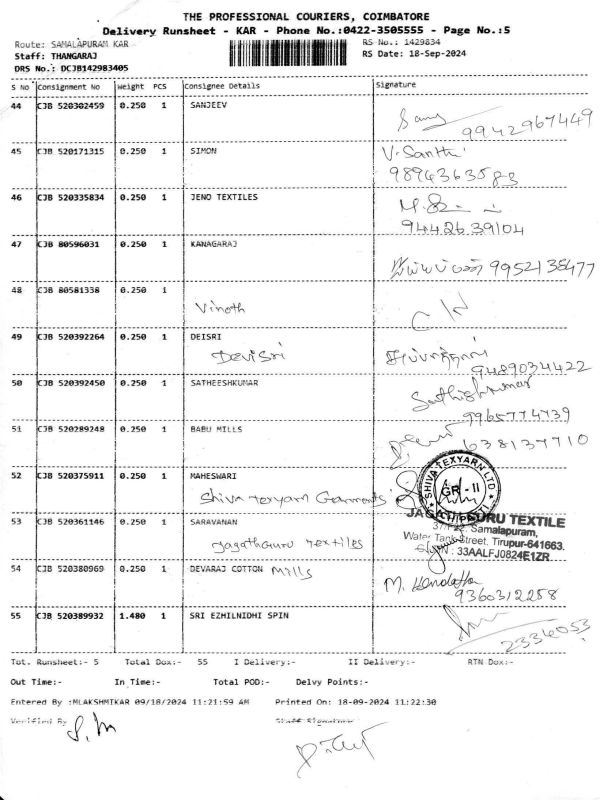 THE PROFESSIONAL COURIERS, COIMBATORE
Delivery Runsheet - KAR - Phone No.:0422-3505555 - Page No.:5
Route: SAMALAPURAM KAR RS No.: 1429834
Staff: THANGARAJ RS Date: 18-Sep-2024
DRS No.: DCJB142983405
S No Consignment No Weight PCS Consignee Details Signature
44 CJB 520302459 0.250 1 SANJEEV
9942967449
45 CJB 520171315 0.250 1 SIMON V. Santhi
9894363583
46 CJB 520335834 0.250 1 JENO TEXTILES
9442639104
47 CJB 80596031 0.250 1 KANAGARAJ
9952135477
48 CJB 80581338 0.250 1
Vinoth
49 CJB 520392264 0.250 1 DEISRI
DeviSri 9489034422
50 CJB 520392450 0.250 1 SATHEESHKUMAR Sathishkumar
9965774739
51 CJB 520289248 0.250 1 BABU MILLS
6381377710
52 CJB 520375911 0.250 1 MAHESWARI
Shiva Texyarn Garments
SHIVA TEXYARN LTD.
GR - II
53 CJB 520361146 0.250 1 SARAVANAN
Jagathguru Textiles
JAGATHGURU TEXTILE
Samalapuram,
Water Tank Street, Tirupur-641663.
33AALFJ0824E1ZR
54 CJB 520380969 0.250 1 DEVARAJ COTTON Mills
9360312258
55 CJB 520389932 1.480 1 SRI EZHILNIDHI SPIN
2334053
Tot. Runsheet:- 5 Total Dox:- 55 I Delivery:- II Delivery:- RTN Dox:-
Out Time:- In Time:- Total POD:- Delvy Points:-
Entered By :MLAKSHMIKAR 09/18/2024 11:21:59 AM Printed On: 18-09-2024 11:22:30
Verified By Staff Signature